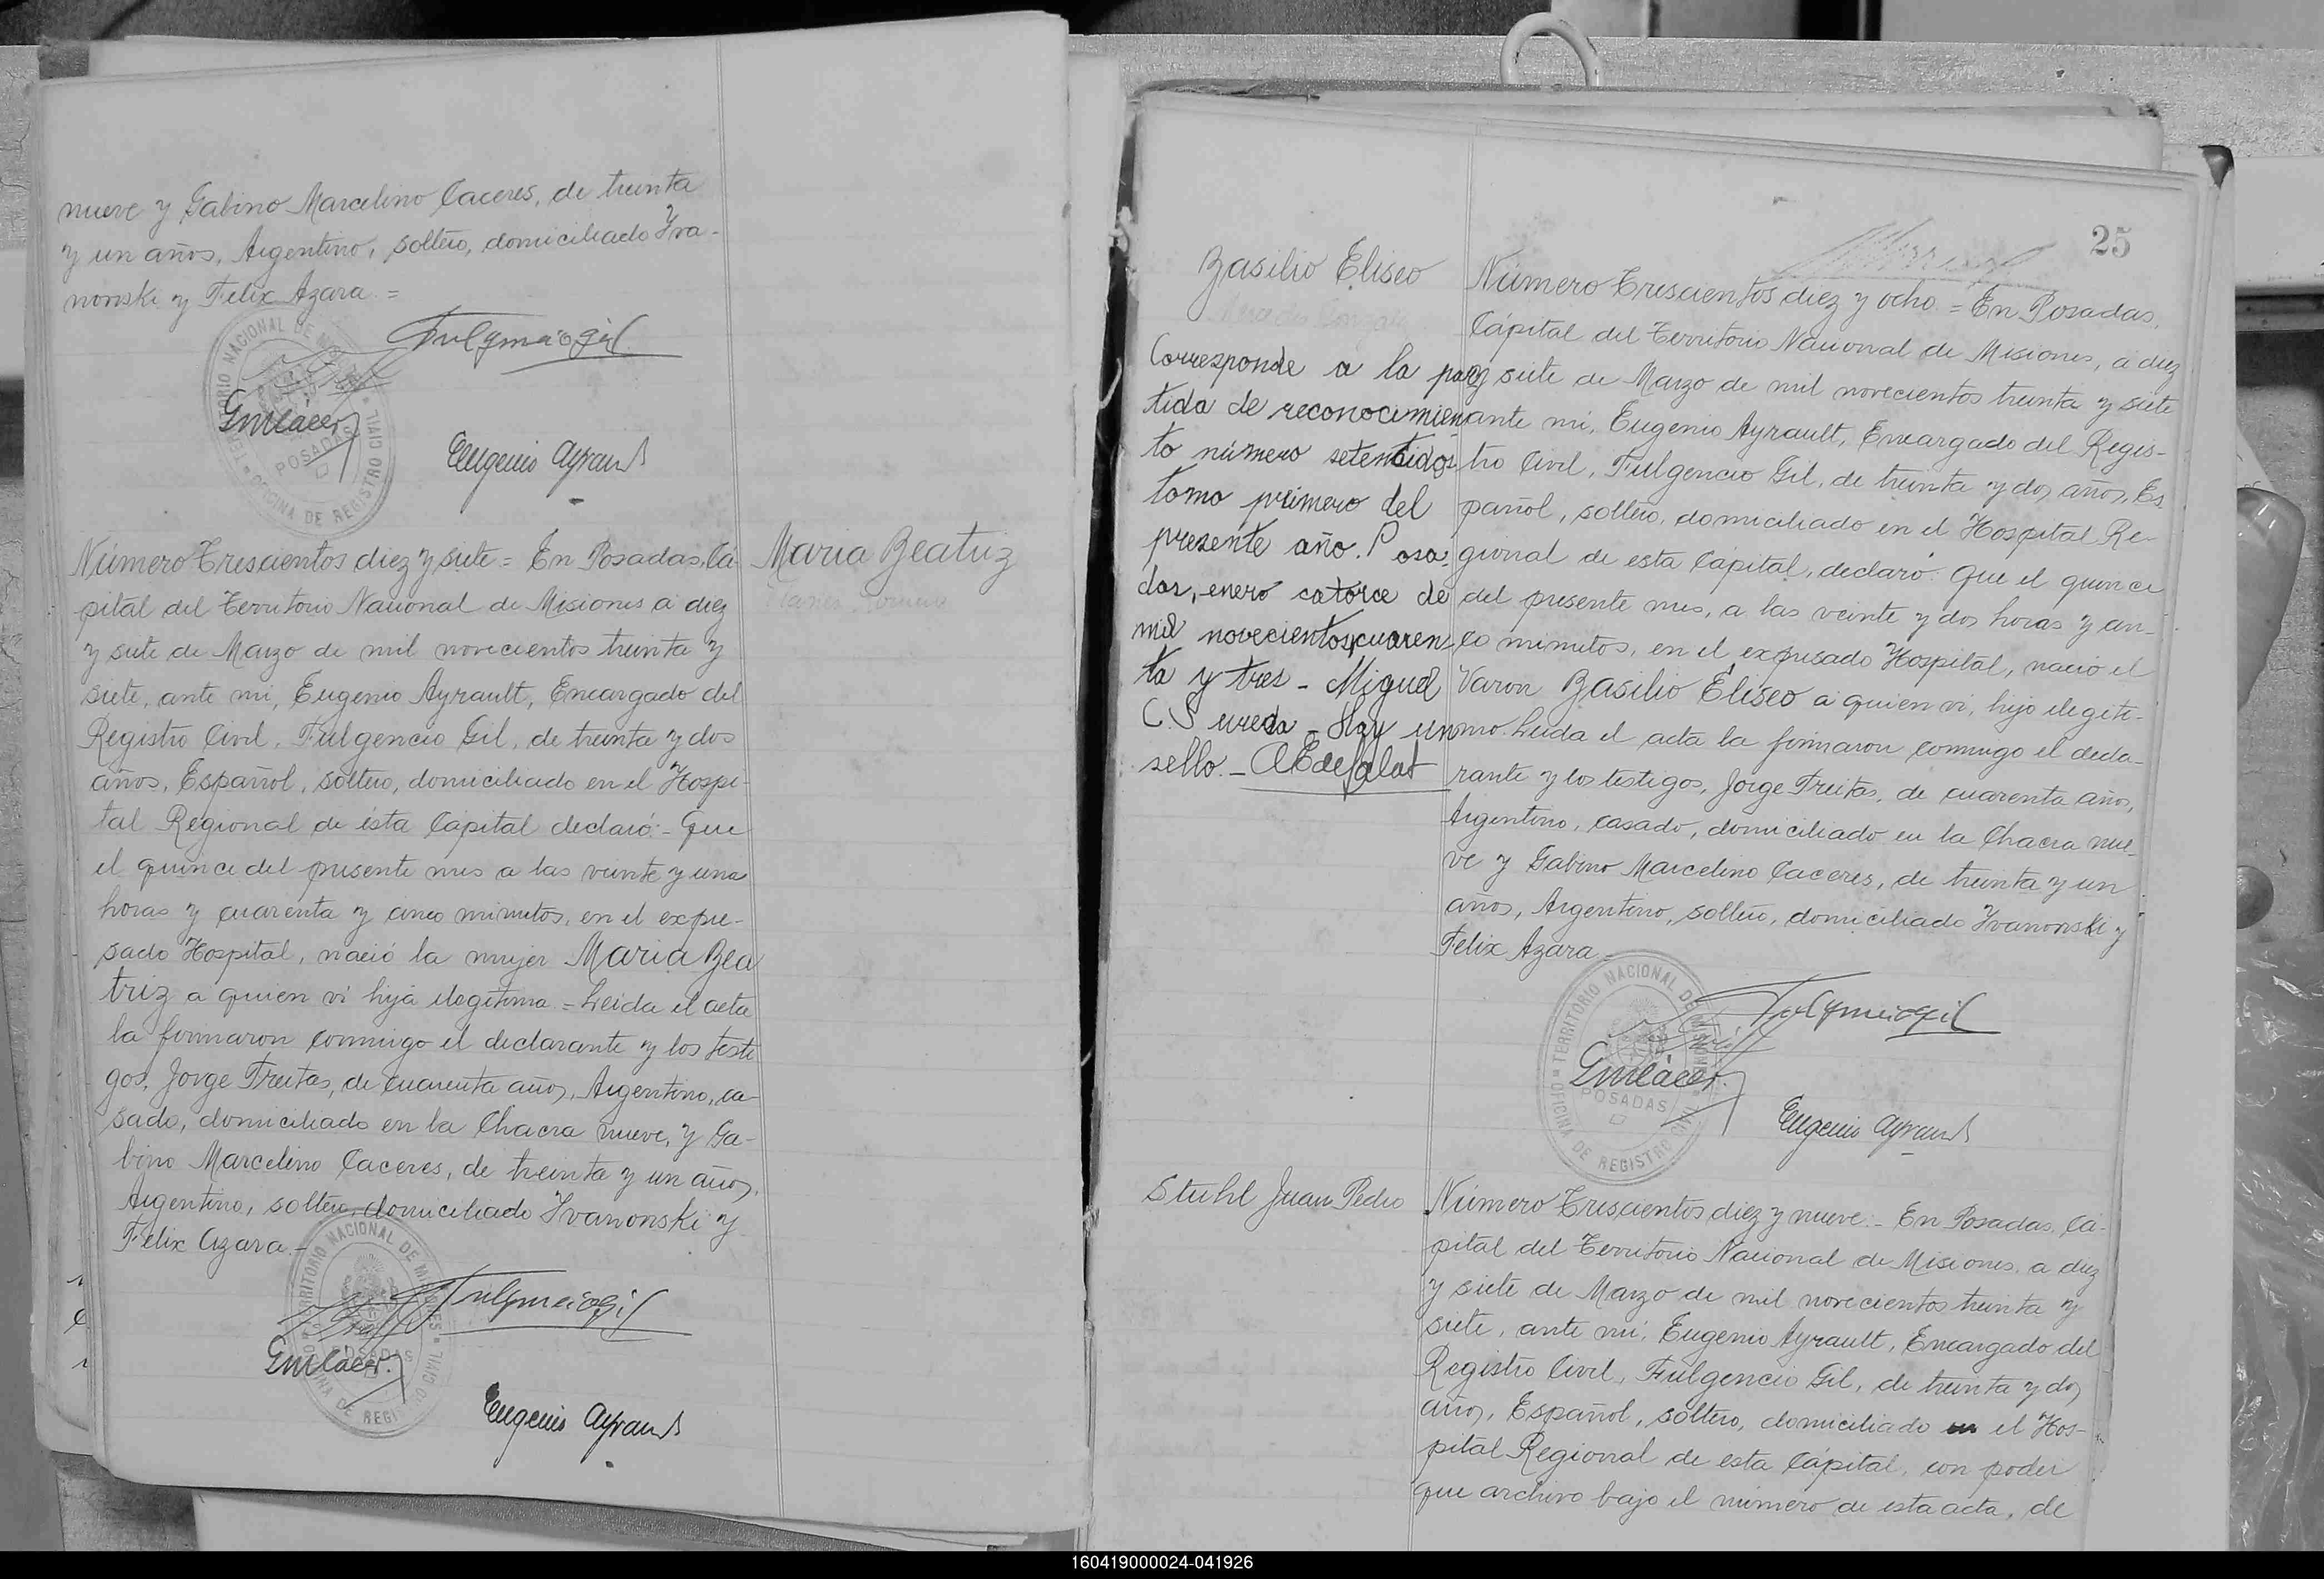 nueve y Gabino Marcelino Caceres, de treinta
y un años, Argentino, soltero, domiciliado Yva-
nonski y Felix Azara =
Fulgencio Gil
TERRITORIO NACIONAL DE MISIONES
OFICINA DE REGISTRO CIVIL
POSADAS
GMCácer
Eugenio Ayrault
Número Trescientos diez y siete = En Posadas, Ca-
pital del Territorio Nacional de Misiones a diez
y siete de Marzo de mil novecientos treinta y
siete, ante mi, Eugenio Ayrault, Encargado del
Registro Civil, Fulgencio Gil, de treinta y dos
años, Español, soltero, domiciliado en el Hospi-
tal Regional de ésta Capital declaró:- Que
el quince del presente mes a las veinte y una
horas y cuarenta y cinco minutos, en el expre-
sado Hospital, nació la mujer Maria Bea
triz a quien vi hija ilegitima = Leida el acta
la firmaron conmigo el declarante y los testi
gos, Jorge Freitas, de cuarenta años, Argentino, ca-
sado, domiciliado en la Chacra nueve, y Ga-
bino Marcelino Caceres, de treinta y un años,
Argentino, soltero, domiciliado Yvanonski y
Felix Azara.-
TERRITORIO NACIONAL DE MISIONES
OFICINA DE REGISTRO CIVIL
POSADAS
Fulgencio Gil
GMCácer.
Eugenio Ayrault
Maria Beatriz
25
Basilio Eliseo
Corresponde a la par
tida de reconocimien
to número setentidos
tomo primero del
presente año. Posa
das, enero catorce de
mil novecientos cuaren
ta y tres - Miguel
C. Sureda - Hay un
sello.-
Número Trescientos diez y ocho = En Posadas,
Cápital del Territorio Nacional de Misiones, a diez
y siete de Marzo de mil novecientos treinta y siete
ante mi, Eugenio Ayrault, Encargado del Regis-
tro Civil, Fulgencio Gil, de treinta y dos años, Es
pañol, soltero, domiciliado en el Hospital Re-
gional de esta Cápital, declaró: Que el quince
del presente mes, a las veinte y dos horas y cin-
co minutos, en el expresado Hospital, nació el
Varon Basilio Eliseo a quien vi, hijo ilegiti-
mo. Leida el acta la firmaron conmigo el decla-
rante y los testigos, Jorge Freitas, de cuarenta años,
Argentino, casado, domiciliado en la Chacra nue-
ve y Gabino Marcelino Caceres, de treinta y un
años, Argentino, soltero, domiciliado Yvanonski y
Felix Azara -
TERRITORIO NACIONAL DE MISIONES
OFICINA DE REGISTRO CIVIL
POSADAS
Fulgencio Gil
GMCácer.
Eugenio Ayrault
Stuhl Juan Pedro
Número Trescientos diez y nueve.- En Posadas, Ca-
pital del Territorio Nacional de Misiones, a diez
y siete de Marzo de mil novecientos treinta y
siete, ante mi, Eugenio Ayrault, Encargado del
Registro Civil, Fulgencio Gil, de treinta y dos
años, Español, soltero, domiciliado en el Hos-
pital Regional de esta Cápital, con poder
que archivo bajo el número de esta acta, de
160419000024-041926